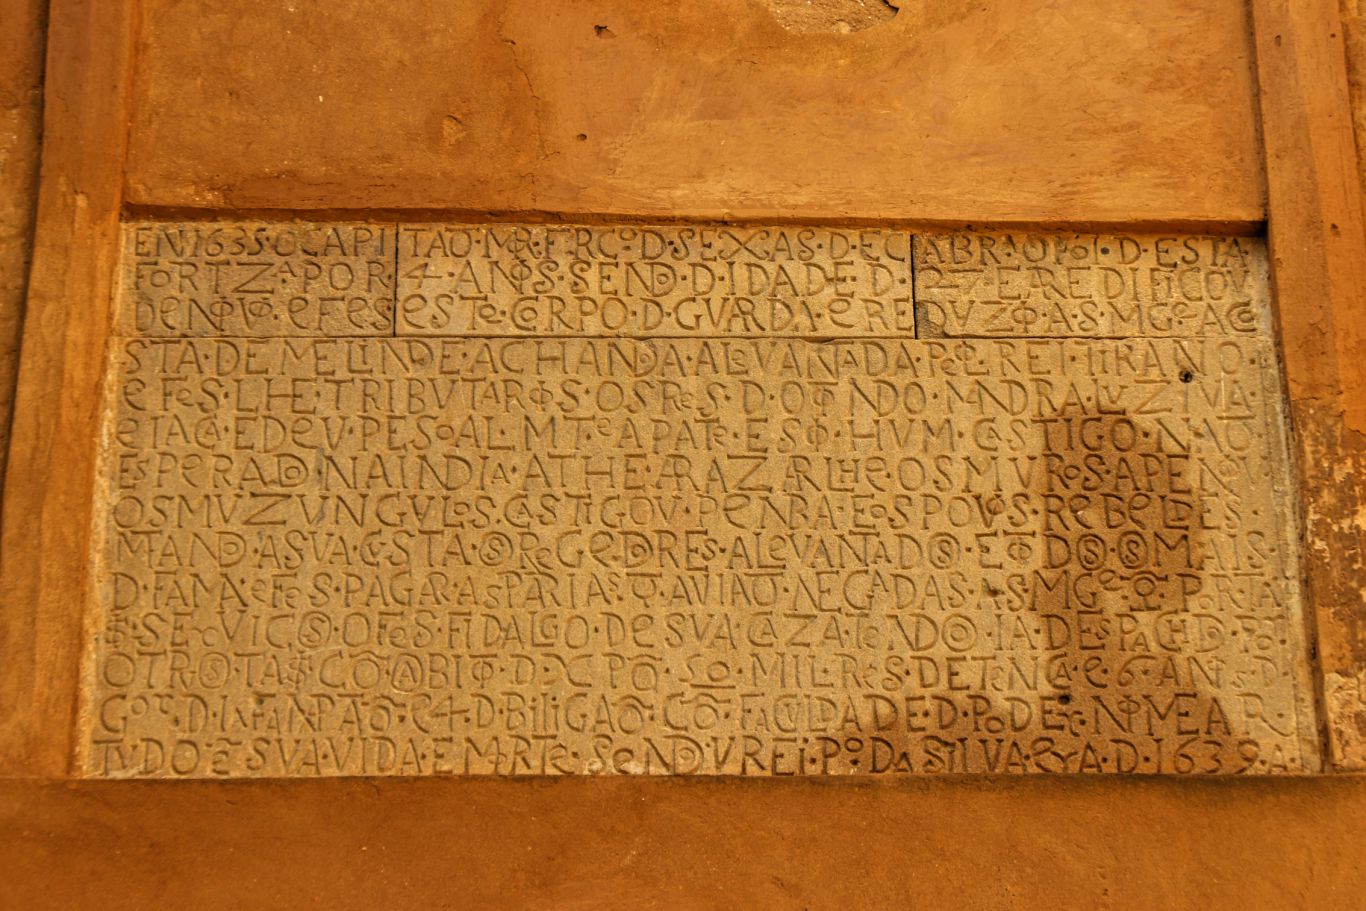 EN·1635·OCAPITAO·MR·FRCO·D·SEXAS·DE C ABRA·O·POI·D·ESTA
FORTZA·POR·4·ANOS·SENDO·D·IDADE·D·27·E REDIFICOV
DENOVO·EFES·ESTE·CORPO·D·GVARDA·E REDVZIO·A·S·MGE·A CO
STA·DE MELINDE·ACHANDO·A LEVANTADA·PELO·REI·TIRANO·
E FES·LHE·TRIBVTARIOS·OS RES·D·OTONDO·MANDRA·LVZIVA·
E IACA·E DEV·PESOAL MTE·A PATE·E SIO·HVM·CASTIGO·NAO
ESPERADO·NA INDIA·ATHE ARAZARLHE·OS MVROS·APENOV·
OS MVZVNGVLOS·CASTIGOV·PENBA·E OS POVOS·REBELDES·
MANDO·A SVA·CVSTA·OS REGEDORES·ALEVANTADOS·E TODOS·OS MAIS·
D·FAMA·E FES·PAGAR·AS PARIAS·Q·AVIAO·NEGADAS·A S·MGE·Q·PORTA
IS SERVICOS·O FES·FIDALGO·DE SVA CAZA·TENDO·IA·DESPACHDO·PO
OTROS·TAIS·CO·O ABITO·D·XPO·50·MIL·RES·DE TENCA·E 6·ANS·D·
GOR·D·IAFANPATAO·E 4·D·BILIGAO·CO·FACVLDADE·D·PODER·NOMEAR·
TVDO·E SVA·VIDA·E MORTE·SENDO·V REI·PO·DA SILVA·ERA·D·1639·A·